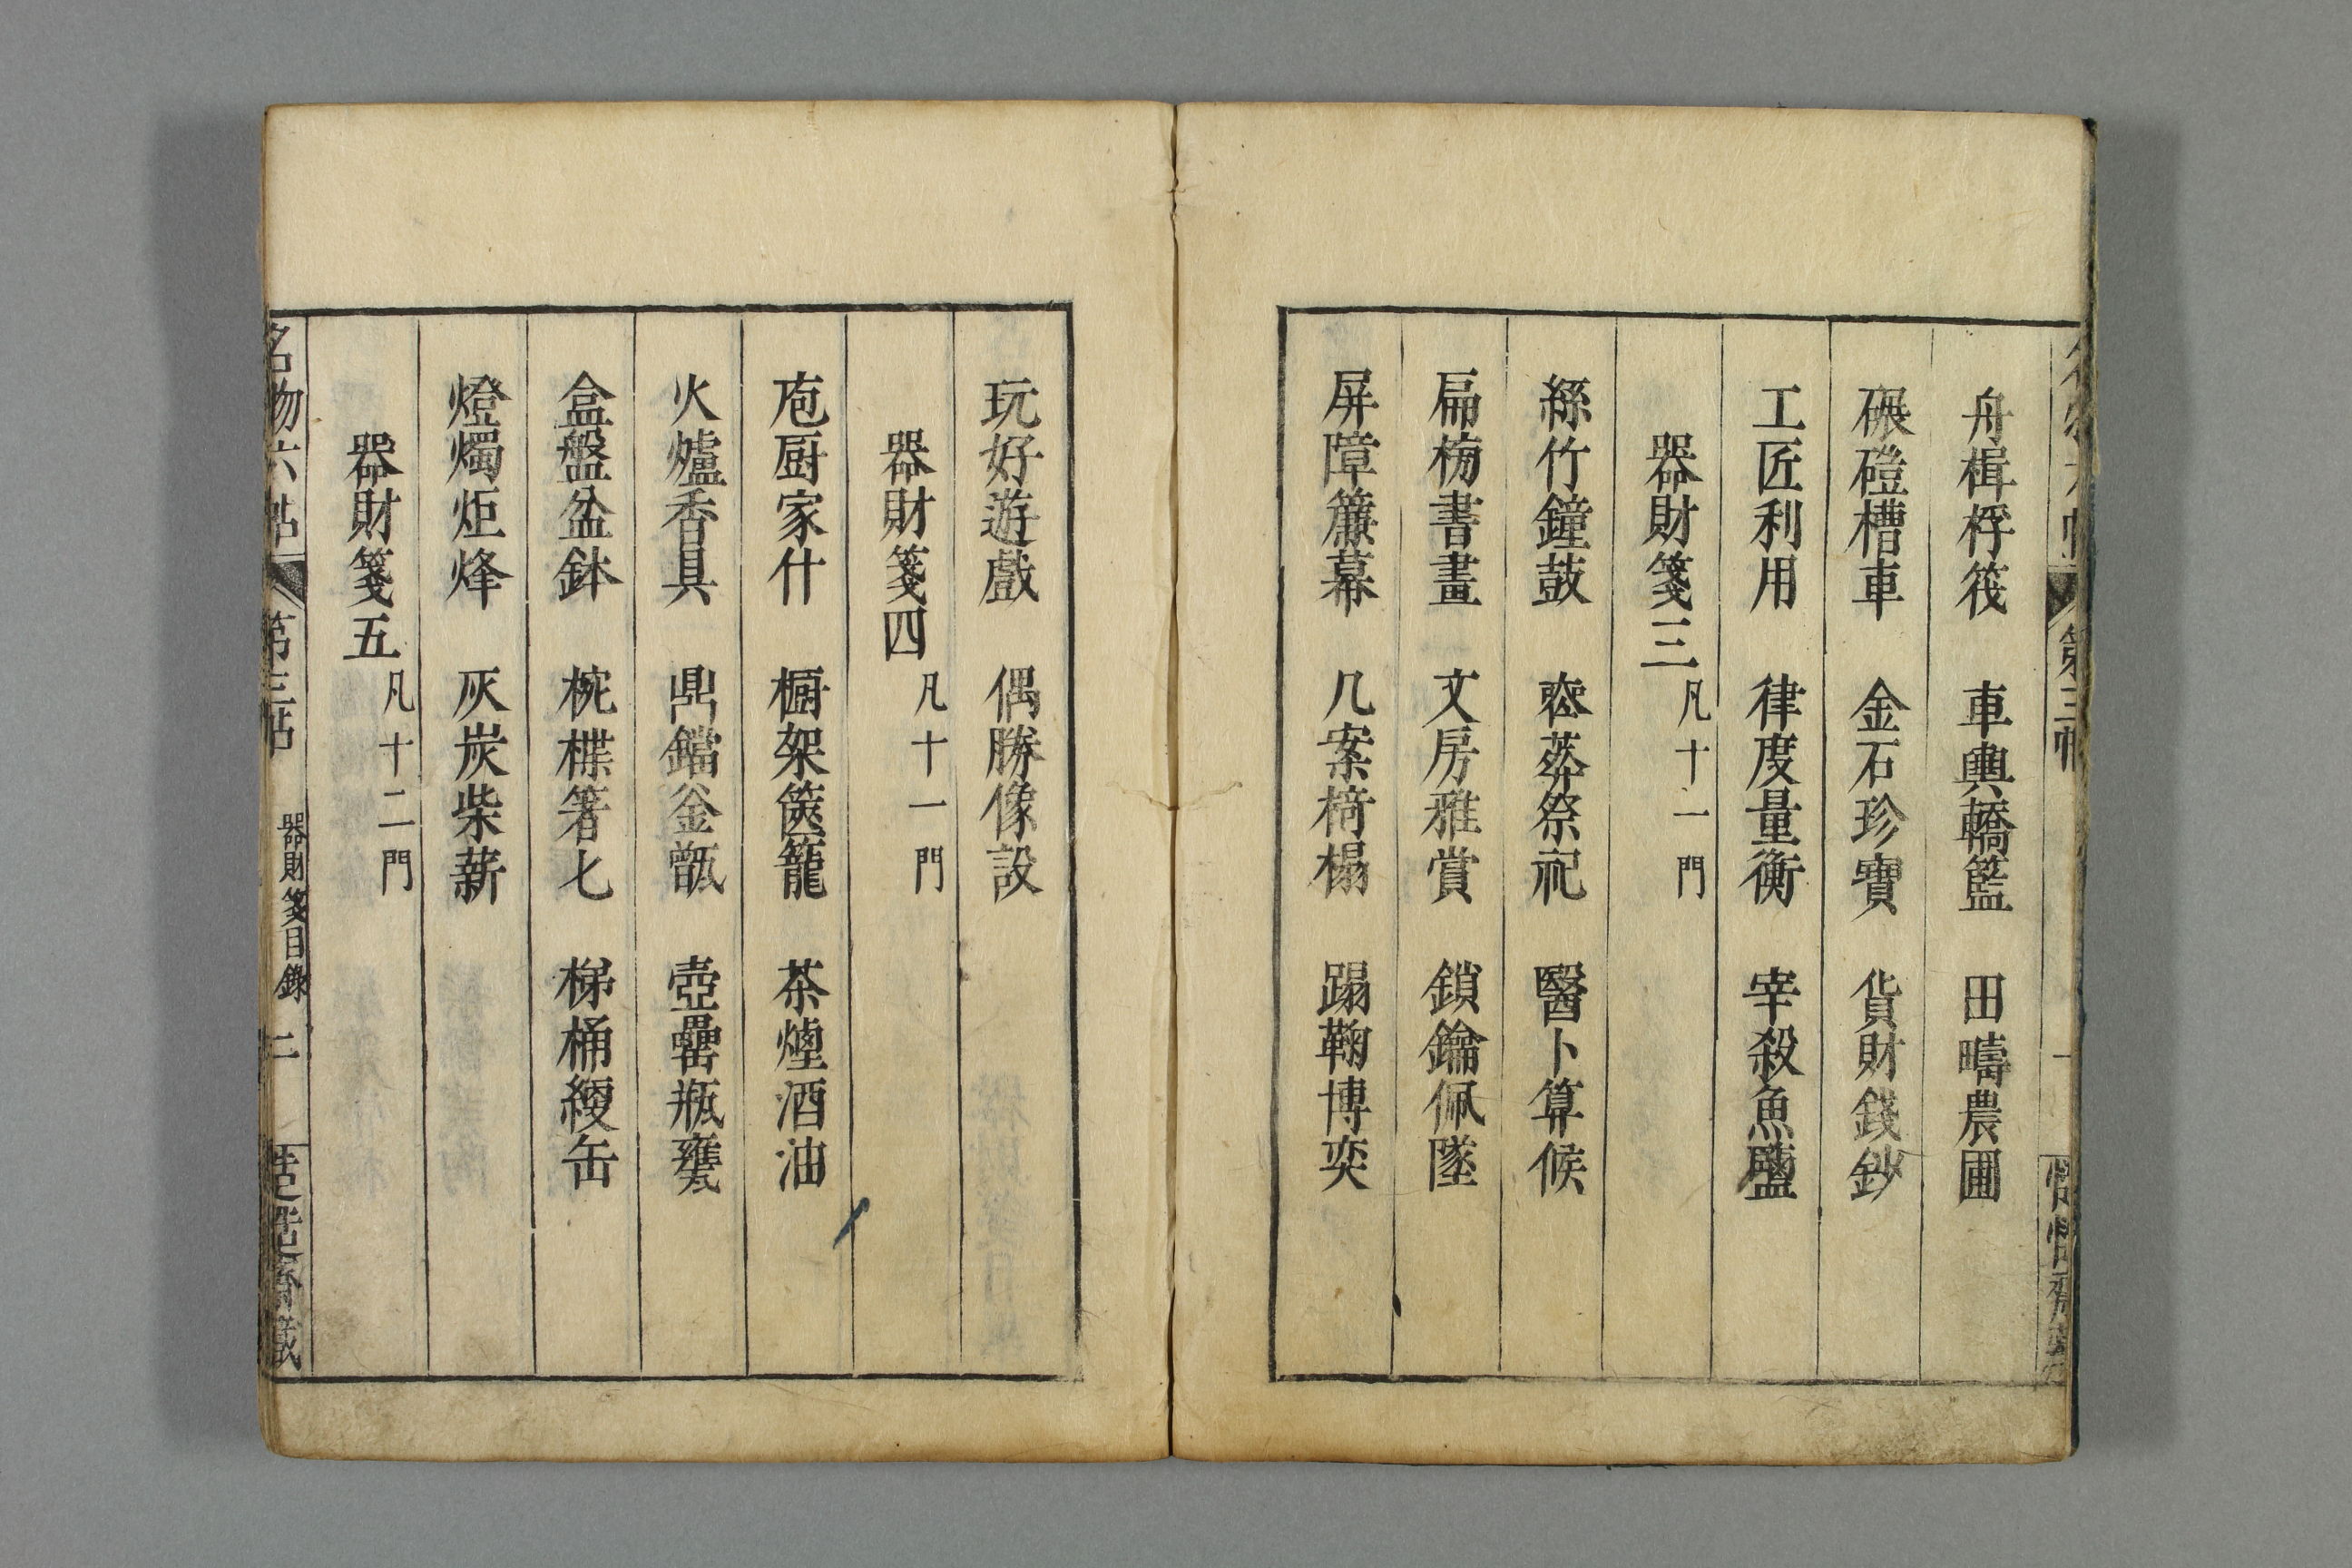 舟楫桴筏　車輿轎籃　田疇農圃
碾磑槽車　金石珍寶　貨財錢鈔
工匠利用　律度量衡　宰殺魚鹽
器財箋三　凡十一門
絲竹鐘鼓　葬祭祀　醫卜算候
扁梅書畫　文房雅賞　鎖鑰佩墜
屏障簾幕　几案椅榻　蹋鞠博奕
玩好遊戲　偶勝像設
器財箋四　凡十一門
庖厨家什　櫥架篋籠　茶煙酒油
火爐香具　鼎鐺釜甑　壺罍瓶甕
盒盤盆鉢　椀楪箸匕　梯桶綆缶
燈燭炬烽　灰炭柴薪
器財箋五　凡十二門
名物六帖　第三帖　器財箋目錄　二